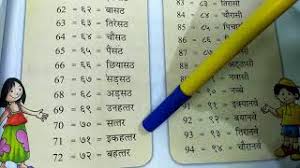 62 = ६२ = बासठ
63 = ६३ = तिरेसठ
64 = ६४ = चौसठ
65 = ६५ = पैंसठ
66 = ६६ = छियासठ
67 = ६७ = सड़सठ
68 = ६८ = अड़सठ
69 = ६९ = उनहत्तर
70 = ७० = सत्तर
71 = ७१ = इकहत्तर
72 = ७२ = बहत्तर
84 = ८४ = चौरासी
86 = ८६ =
90 = ९० = नब्बे
९१ = इक्यानवे
92 = ९२ = बानवे
93 = ९३ = तिरानवे
94 = ९४ = चौरानवे